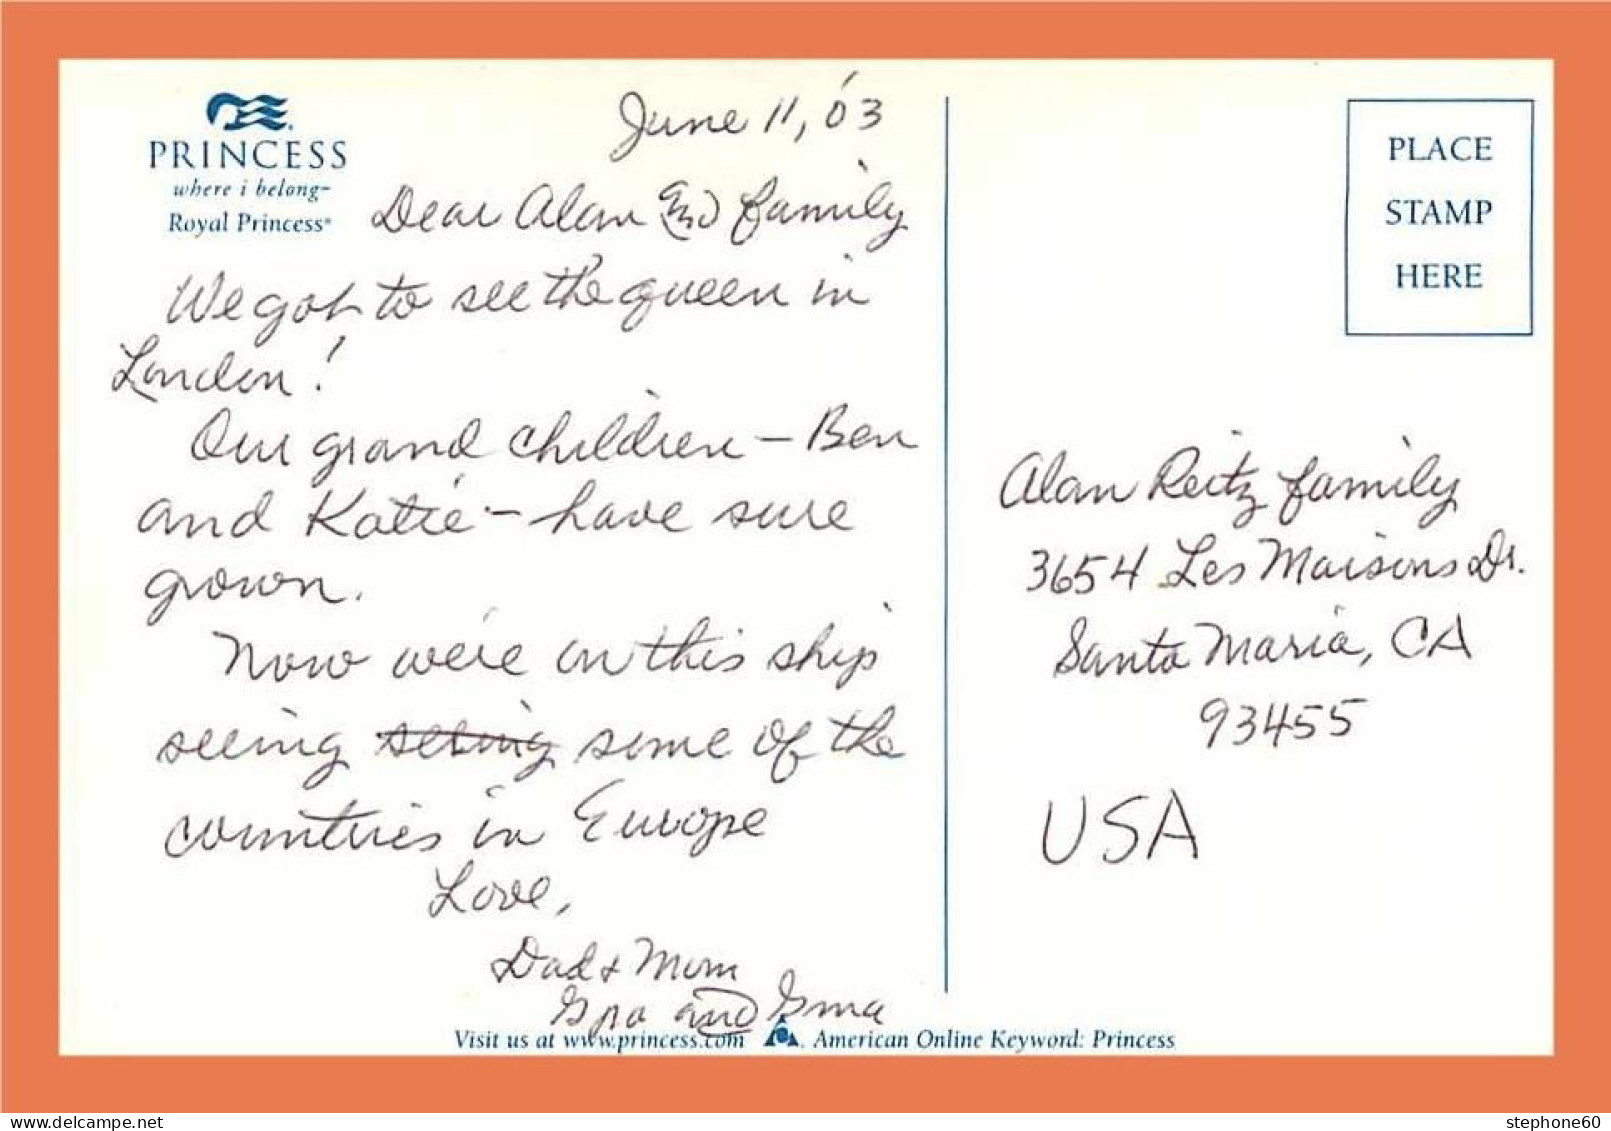 PRINCESS
where i belong
Royal Princess®
June 11, '03
Dear Alan and family
We got to see the queen in
London!
Our grand children – Ben
and Katie – have sure
grown.
Now we're on this ship
seeing seeing some of the
countries in Europe
Love,
Dad & Mom
Gpa and Gma
Visit us at www.princess.com American Online Keyword: Princess
PLACE
STAMP
HERE
Alan Reitz family
3654 Les Maisons Dr.
Santa Maria, CA
93455
USA
stephone60